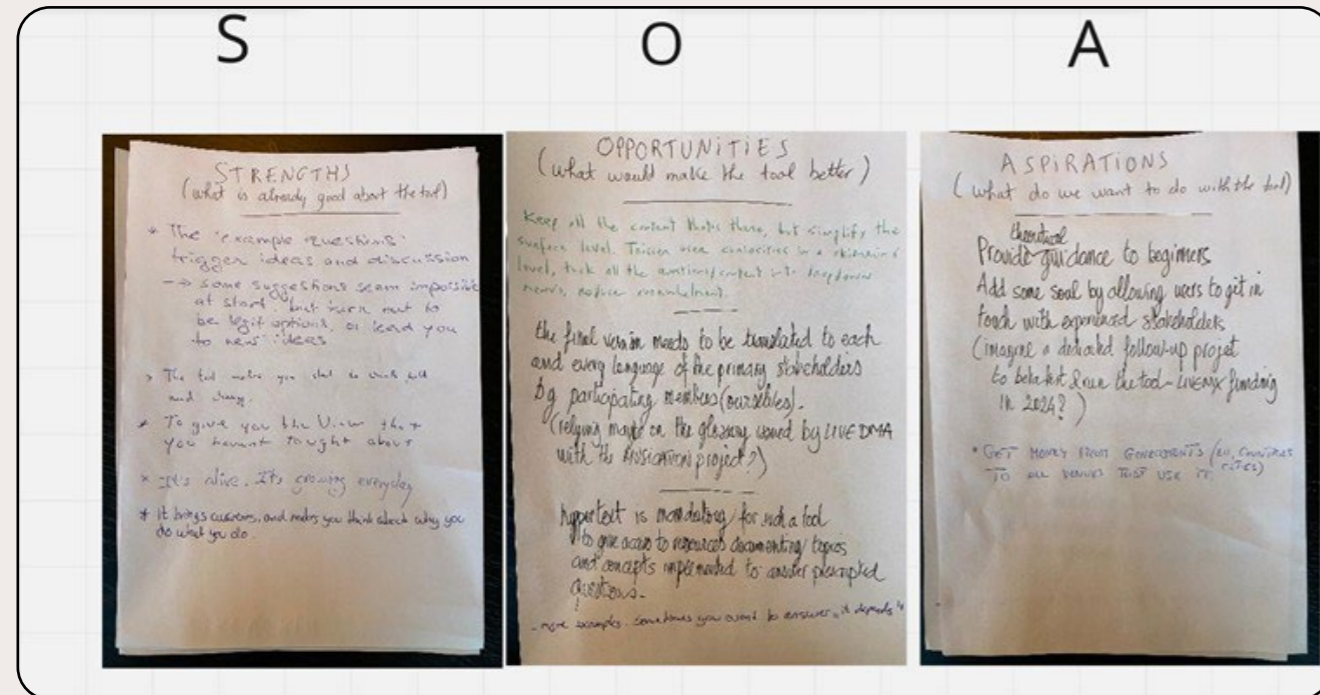 S
O
A
STRENGTHS
(what is already good about the tool)
* The "example questions"
trigger ideas and discussion
-> some suggestions seam impossible
at start, but turn out to
be legit options, or lead you
to new ideas
The tool makes you start to
and
* To give you the View that
you havent tought about
* It's alive. It's growing everyday
* It brings and makes you think about why you
do what you do.
OPPORTUNITIES
(what would make the tool better)
Keep all the content that's there, but simplify the
surface level. Trigger user curiosities in a
level, tuck all the content into dropdown
menus, reduce
the final version needs to be translated to each
and every language of the primary stakeholders
by participating members (ourselves).
(relying maybe on the glossary by LIVE DMA
with the project?)
hypertext is mandatory for such a tool
to give access to resources documenting topics
and concepts implemented to answer
questions.
more examples. sometimes you want to answer "it depends"
ASPIRATIONS
(what do we want to do with the tool)
theoretical
Provide guidance to beginners
Add some soul by allowing users to get in
touch with experienced stakeholders
(imagine a dedicated follow-up project
to betatest & run the tool - LIVEMX funding
in 2024?)
* GET MONEY FROM GOVERNMENTS (EU, COUNTRIES
CITIES)
TO ALL VENUES THAT USE IT.